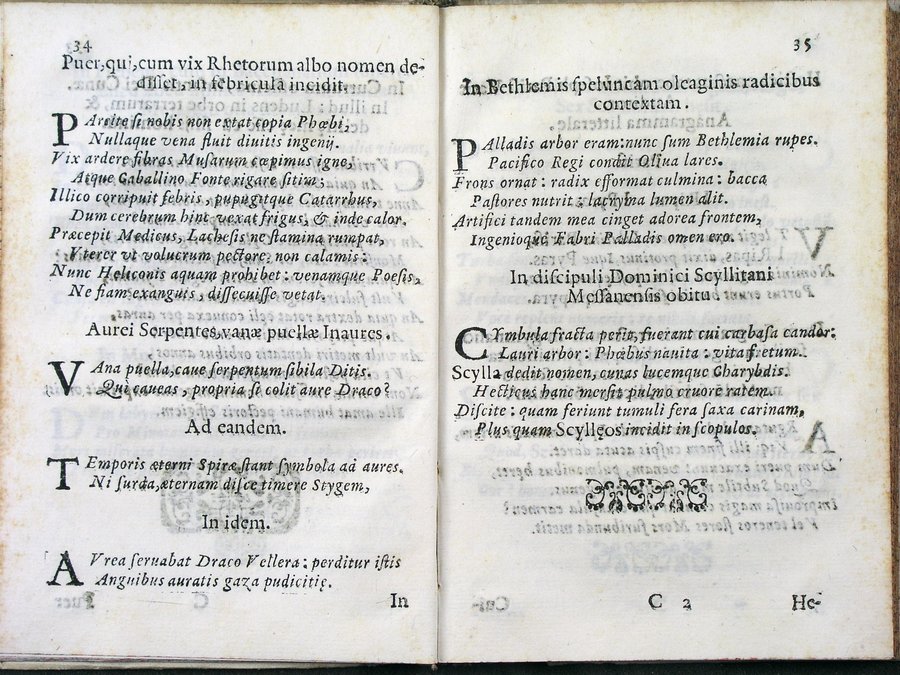 34
Puer, qui, cum vix Rhetorum albo nomen de-
disset, in febriculã incidit.
PArcite si nobis non extat copia Phœbi,
Nullaque vena fluit diuitis ingenij.
Vix ardere fibras Musarum cœpimus igne,
Atque Caballino Fonte rigare sitim;
Illico corripuit febris, pupugitque Catarrhus,
Dum cerebrum hinc vexat frigus, & inde calor.
Præcepit Medicus, Lachesis ne stamina rumpat,
Vterer vt volucrum pectore, non calamis:
Nunc Heliconis aquam prohibet: venamque Poesis,
Ne fiam exanguis, dissecuisse vetat.
Aurei Serpentes, vanæ puellæ Inaures.
VAna puella, caue serpentum sibila Ditis.
Qui caueas, propria si colit aure Draco?
Ad eandem.
TEmporis æterni Spiræ stant symbola ad aures.
Ni surda, æternam disce timere Stygem,
In idem.
AVrea seruabat Draco Vellera: perditur istis
Anguibus auratis gaza pudicitię.
In
35
In Bethlemis speluncam oleaginis radicibus
contextam.
PAlladis arbor eram: nunc sum Bethlemia rupes.
Pacifico Regi condit Oliua lares.
Frons ornat: radix efformat culmina: bacca
Pastores nutrit: lacryma lumen alit.
Artifici tandem mea cinget adorea frontem,
Ingenioque Fabri Palladis omen ero.
In discipuli Dominici Scyllitani
Messanensis obitu
CYmbula fracta perit, fuerant cui carbasa candor:
Lauri arbor: Phœbus nauita: vita fretum.
Scylla dedit nomen, cunas lucemque Charybdis.
Hecticus hanc mersit pulmo cruore ratem.
Discite: quam feriunt tumuli fera saxa carinam,
Plus quam Scyllęos incidit in scopulos.
C 2
He-